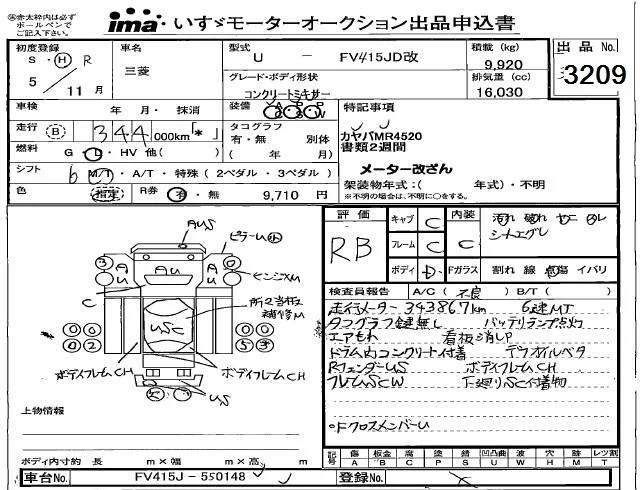 ㊟赤太枠内は必ず
ボールペンで
ご記入下さい。
ima・いすゞモーターオークション出品申込書
出品No.
3209
初度登録
S・H R
5 / 11月
車名
三菱
型式
U - FV415JD改
グレード・ボディ形状
コンクリートミキサー
積載 (kg)
9,920
排気量 (cc)
16,030
車検 年・月・抹消
装備
走行 (B) 344,000km「*」
タコグラフ
有・無 別体
( 年 月)
燃料 G・・HV 他( )
シフト 6 M/T・A/T・特殊 (2ペダル・3ペダル)
色 (指定) R券 有・無 9,710 円
特記事項
カヤバMR4520
書類2週間
メーター改ざん
架装物年式:( 年式)・不明
※不明の場合は、不明に○をする。
評価
RB
キャブ C
フレーム C
ボディ D
内装 C
Fガラス
汚れ 破れ
割れ 線 点傷 イバリ
検査員報告 A/C(不良) B/T( )
走行メーター394386.7km 6速MT
タコグラフ鍵無し バッテリランプ点灯
エアもれ 看板消し
ドラム内コンクリート付着 デフオイルベタ
RフェンダーUS ボディフレームCH
フレームSCW 下廻りSC付着物
○FクロスメンバーU
AUS
ピラー
AU
AU
AU
エンジンM
C
USC
補修M
ボディフレームCH
ボディフレームCH
US
上物情報
ボディ内寸約 長 m×幅 m×高 m
記号
傷 A
板金 B
腐 C
塗 P
錆 S
凹凸曲 U
波 W
穴 H
跡 M
レツ割 T
車台No. FV415J - 550148
登録No.